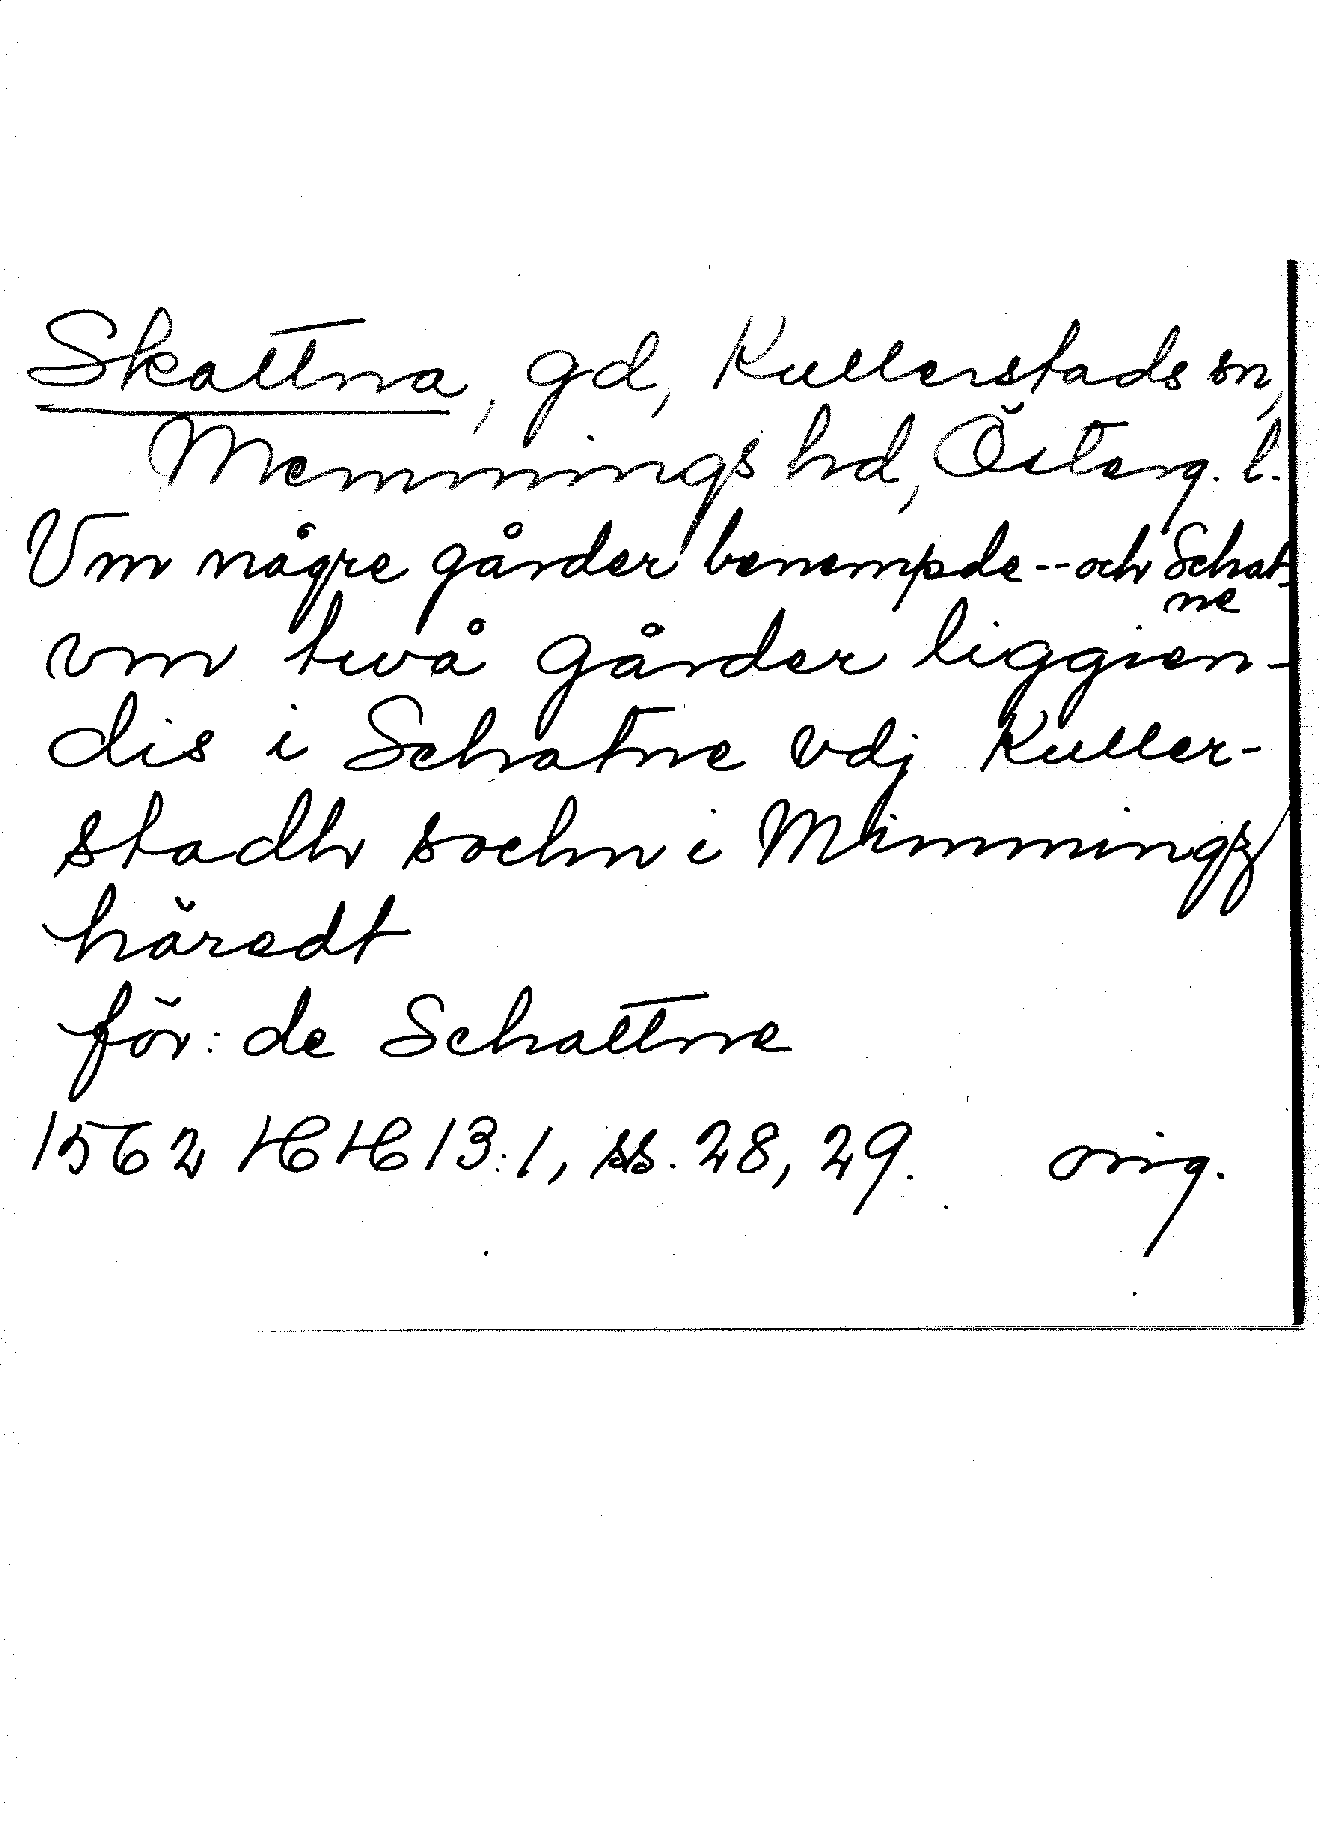 Skattna, gd, Kullerstads sn,
Memmings hd, Österg. l.
Vm någre gårder benempde -- och Schat-
ne
vm två gårder liggien-
dis i Schatne vdj Kuller-
stadh sochn i Mimmingz
häredt
för: de Schattne
1562 HH 13:1, ss. 28, 29. orig.